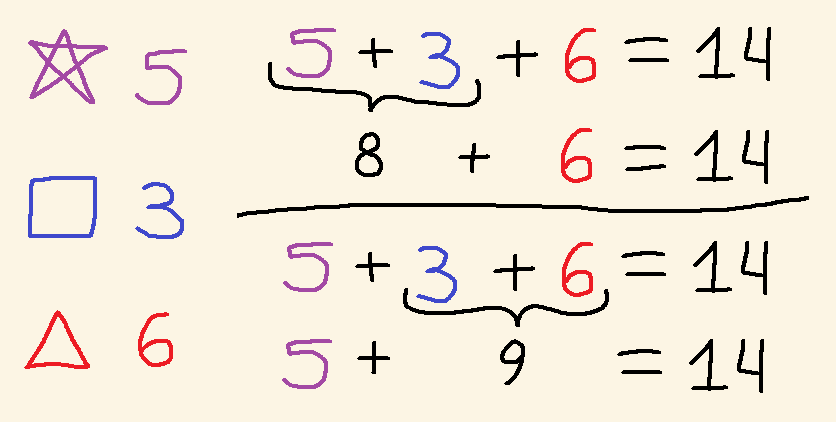 5
3
6
5 + 3 + 6 = 14
8 + 6 = 14
5 + 3 + 6 = 14
5 + 9 = 14